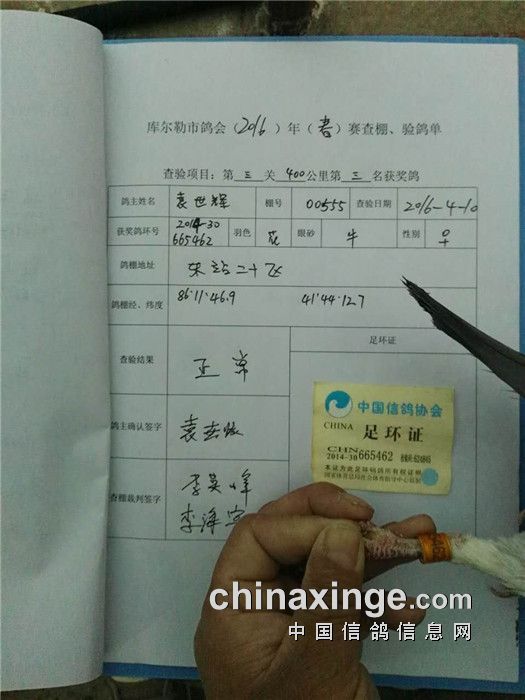 库尔勒市鸽会(2016)年(春)赛查棚、验鸽单
查验项目:第三关400公里第三名获奖鸽
鸽主姓名 袁世辉 棚号 00555 查验日期 2016-4-10
获奖鸽环号 2014-30 665462 羽色 花 眼砂 牛 性别 ♀
鸽棚地址
鸽棚经、纬度 86·11·46.9 41·44·12.7
足环证
查验结果 正常
鸽主确认签字 袁世辉
查棚裁判签字 李英峰
中国信鸽协会
CHINA 足环证
CHN
2014-30 665462
本证为此足环信鸽所有权证明
国家体育总局社会体育指导中心监制
chinaxinge.com
中国信鸽信息网